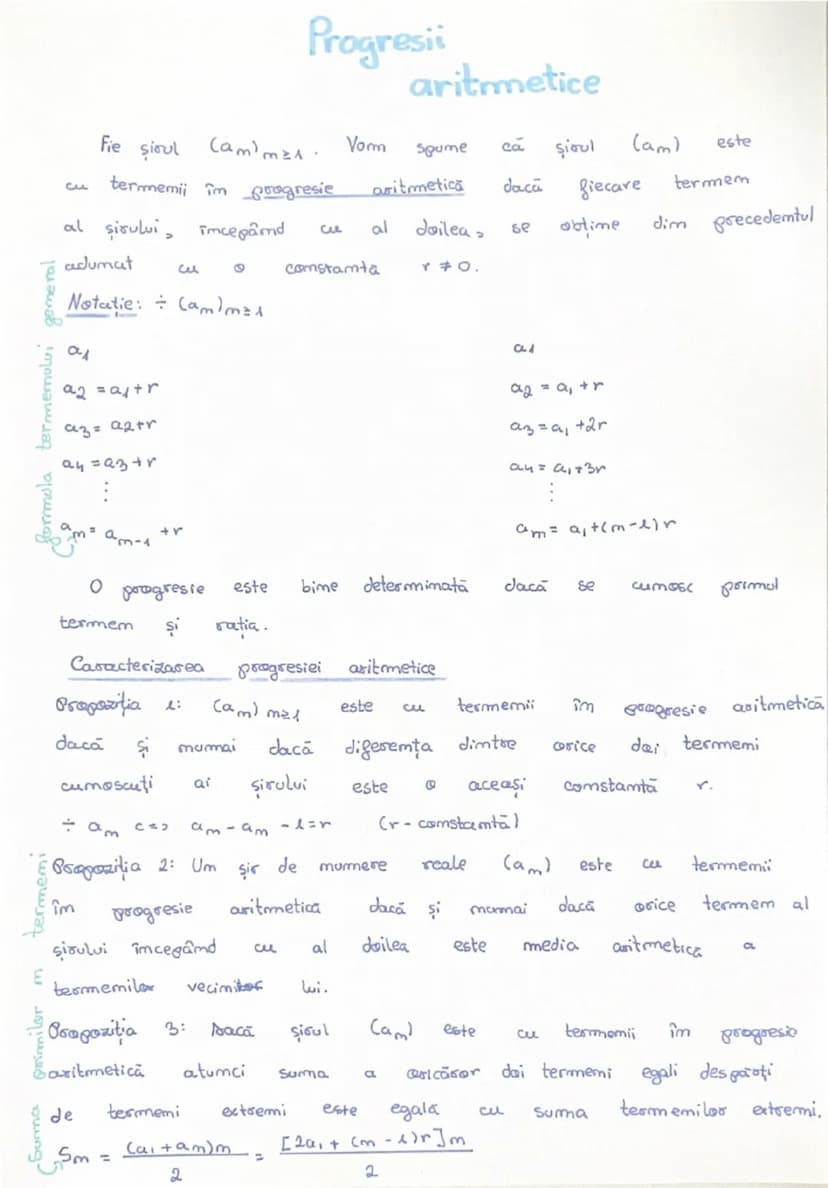 Progresii
aritmetice
Fie șirul (an) n≥1. Vom spune că șirul (an) este
cu termenii în progresie aritmetică dacă fiecare termen
al șirului, începând cu al doilea, se obține din precedentul
adunat cu o constantă r ≠ 0.
Notație: ÷ (an)n≥1
formula termenului general
a1
a2 = a1+r
a3 = a2+r
a4 = a3+r
⋮
an = an-1 +r
a1
a2 = a1 +r
a3 = a1 +2r
a4 = a1+3r
⋮
an = a1+(n-1)r
O progresie este bine determinată dacă se cunosc primul
termen și rația.
Caracterizarea progresiei aritmetice
Propoziția 1: (an) n≥1 este cu termenii în progresie aritmetică
dacă și numai dacă diferența dintre orice doi termeni
cunoscuți ai șirului este o aceași constantă r.
÷ an <=> an - an - 1 = r (r - constantă)
Propoziția 2: Un șir de numere reale (an) este cu termenii
în progresie aritmetică dacă și numai dacă orice termen al
șirului începând cu al doilea este media aritmetică a
termenilor vecinilor lui.
Propoziția 3: Dacă șirul (an) este cu termenii în progresie
aritmetică atunci suma a oricăror doi termeni egali despărțiți
de termeni extremi este egală cu suma termenilor extremi.
Suma primilor n termeni
Sn = (a1 + an)n / 2 = [2a1 + (n - 1)r]n / 2